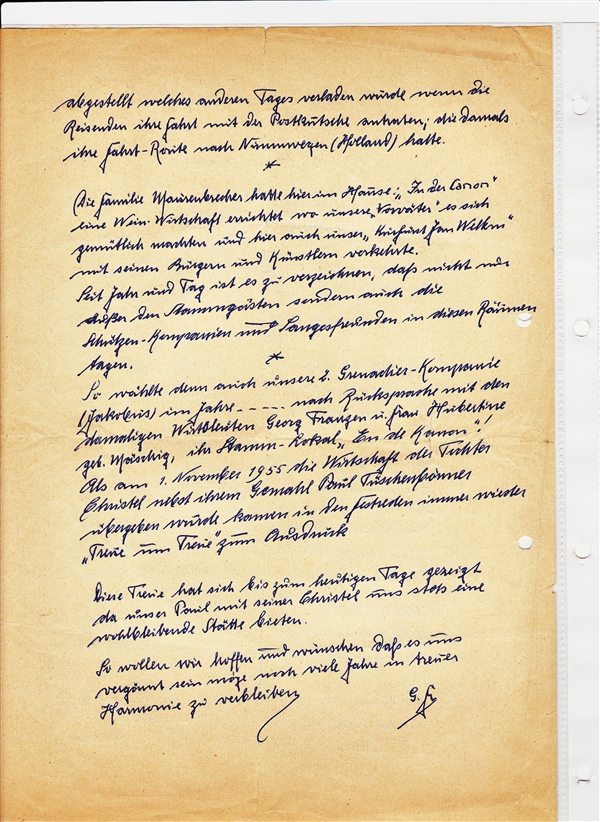 abgestellt welches anderen Tages verladen wurde wenn die
Reisenden ihre Fahrt mit der Postkutsche antraten; die damals
ihre Fahrt-Route nach Nummwegen (Holland) hatte.
*
(Die Familie Maurenbrecher hatte hier im Hause: „In der Canon"
eine Wein-Wirtschaft errichtet wo unsere „Vorväter" es sich
gemütlich machten und hier auch unser „Kurfürst Jan Wellem"
mit seinen Bürgern und Künstlern verkehrte.
Seit Jahr und Tag ist es zu verzeichnen, daß nicht nur
außer den Stammgästen sondern auch die
Schützen-Kompanien und Sangesfreunden in diesen Räumen
tagen.
*
So wählte denn auch unsere 2. Grenadier-Kompanie
(Jakobus) im Jahre - - - - - nach Rücksprache mit den
damaligen Wirtsleuten Georg Franzen u. Frau Hubertine
geb. Mäschig, ihr Stamm-Lokal „En de Kanon"!
Als am 1. November 1955 die Wirtschaft der Tochter
Christel nebst ihrem Gemahl Paul Tuschenbönner
übergeben wurde kamen in den Festreden immer wieder
„Treue um Treue" zum Ausdruck
Diese Treue hat sich bis zum heutigen Tage gezeigt
da unser Paul mit seiner Christel uns stets eine
wohlbleibende Stätte bieten.
So wollen wir hoffen und wünschen daß es uns
vergönnt sein möge noch viele Jahre in treuer
Harmonie zu verbleiben